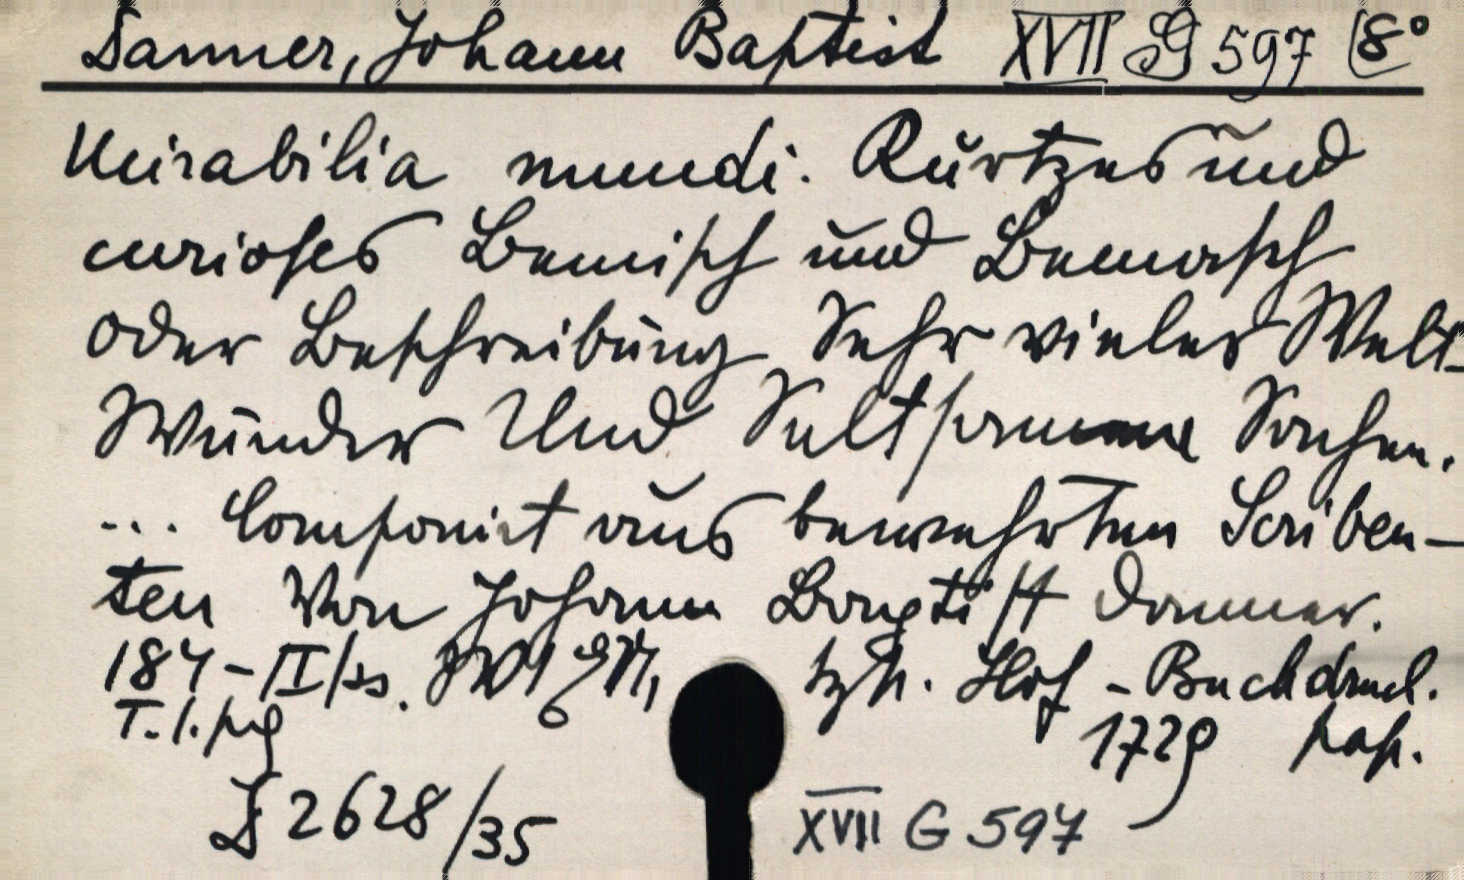 Danner, Johann Baptist XVII G 597 (8°
Mirabilia mundi. Kurtzes und
curioses Gemisch und Gemasch
oder Beschreibung Sehr vieler Welt-
Wunder Und Seltsame Sachen.
... Componirt aus bewehrten Scriben-
ten Von Johann Baptist Danner.
184-II/ss. Hof-Buchdruck.
T. 1. 1729 pap.
J 2628/35 XVII G 597